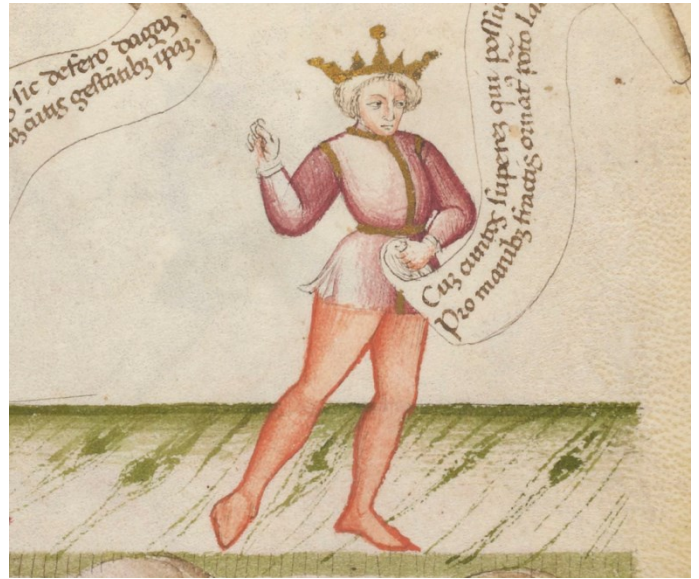 sic defero dagaz.
gestantibz ipaz.
Cuz cunctos superez qui possiu
Pro manibz fractis ornat